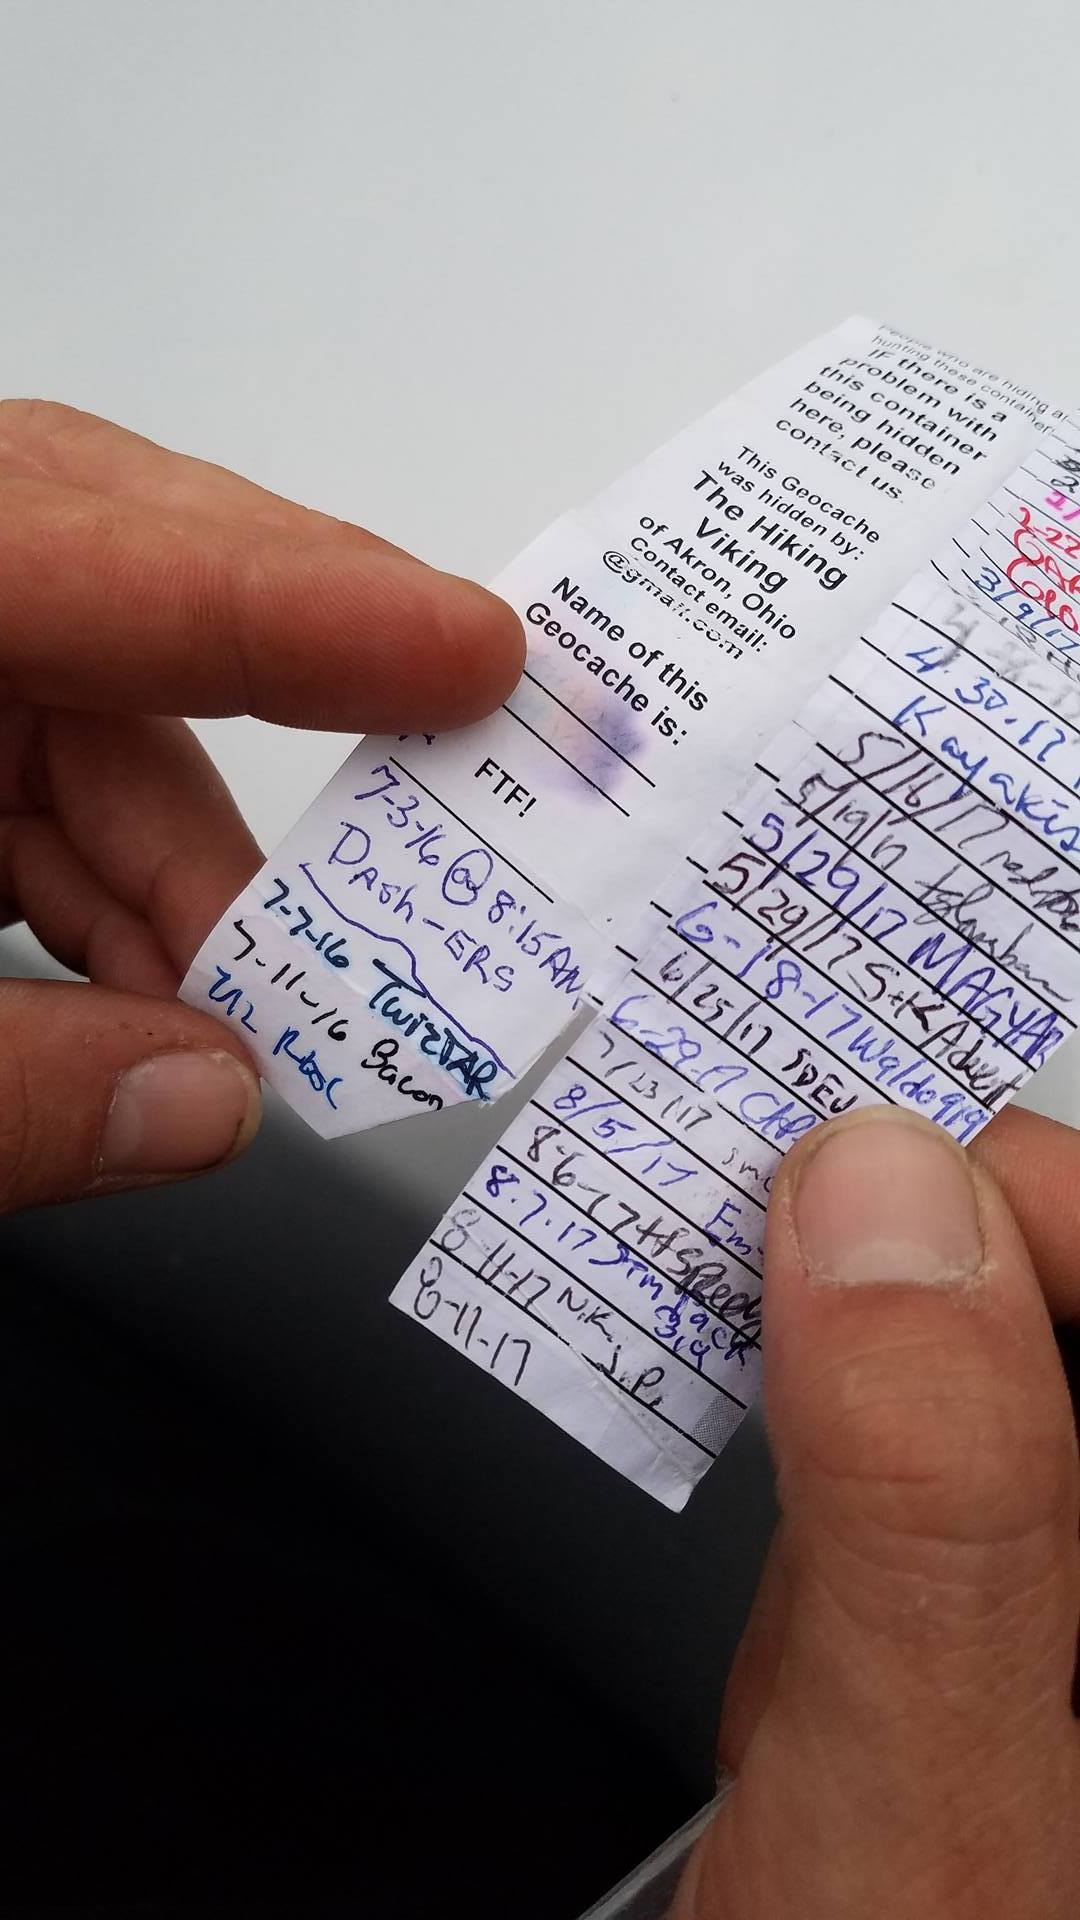 People who are hiding a
hunting these container
IF there is a
problem with
this container
being hidden
here, please
contact us.
This Geocache
was hidden by:
The Hiking
Viking
of Akron, Ohio
Contact email:
@gmail.com
Name of this
Geocache is:
FTF!
7-3-16 @ 8:15AM
DASh-ERS
7-7-16 TWIZTAR
7-11-16 Bacon
7/12
3/9/17
4.30.17
Kayakis
5/16/17
5/19/17
5/29/17 MAGYAR
5/29/17 S+K Advent
6-18-17 Waldo919
6/25/17 SDEV
6-29-17
7/23/17
8/5/17 Em
8-6-17 HSpeedy
8.7.17 Jimback
8-11-17 N.K.
8-11-17 J.P.